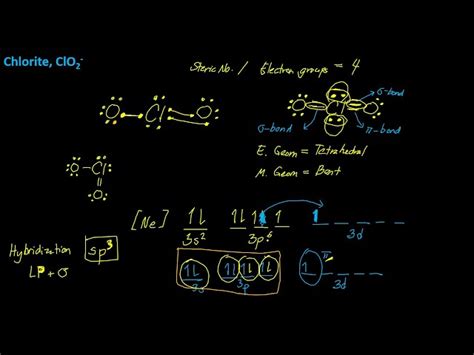 Chlorite, ClO2-
Steric No. / Electron groups = 4
O Cl O
σ-bond
σ-bond
π-bond
E. Geom = Tetrahedral
M. Geom = Bent
O Cl
O
[Ne] 1l 1l 11 1 1
3s2 3p5 3d
Hybridization sp3
LP + σ
1l 1l 1l 1l 1 π
3s 3p 3d